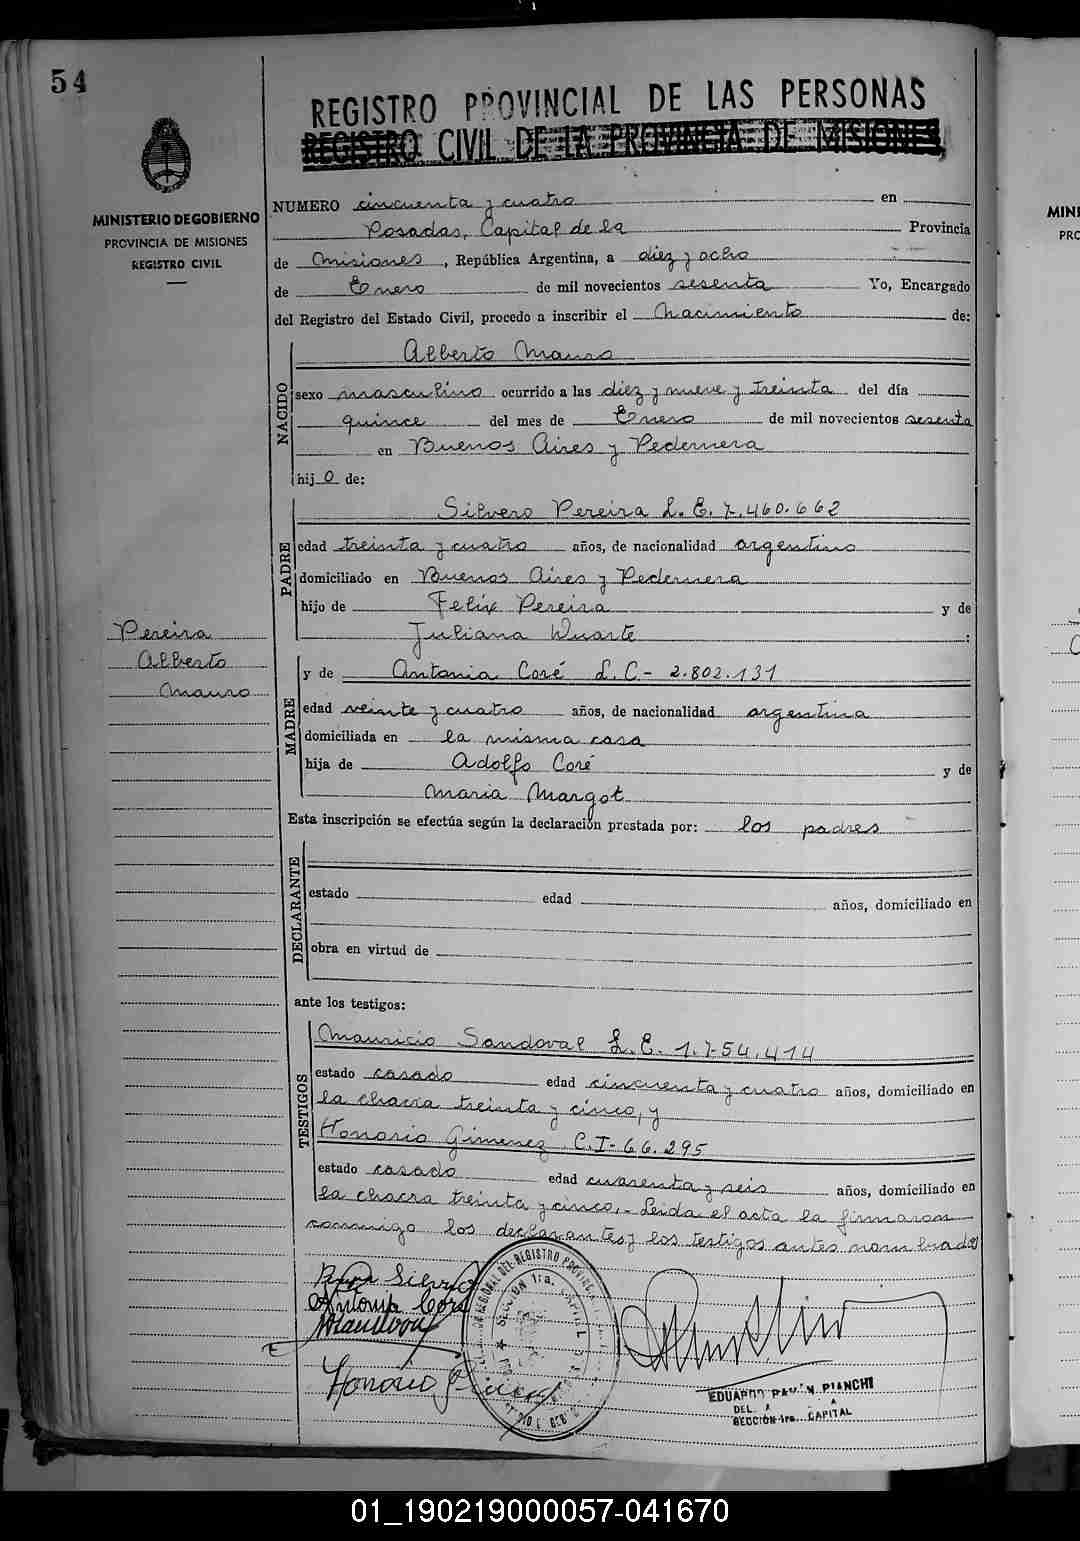 54
REGISTRO PROVINCIAL DE LAS PERSONAS
REGISTRO CIVIL DE LA PROVINCIA DE MISIONES
MINISTERIO DE GOBIERNO
PROVINCIA DE MISIONES
REGISTRO CIVIL
NUMERO cincuenta y cuatro en
Posadas, Capital de la Provincia
de Misiones, República Argentina, a diez y ocho
de Enero de mil novecientos sesenta Yo, Encargado
del Registro del Estado Civil, procedo a inscribir el Nacimiento de:
NACIDO
Alberto Mauro
sexo masculino ocurrido a las diez y nueve y treinta del día
quince del mes de Enero de mil novecientos sesenta
en Buenos Aires y Pedernera
hijo de:
PADRE
Silvero Pereira L.E. 7.460.662
edad treinta y cuatro años, de nacionalidad argentino
domiciliado en Buenos Aires y Pedernera
hijo de Felix Pereira y de
Juliana Duarte :
Pereira
Alberto
Mauro
MADRE
y de Antonia Coré L.C- 2.802.131
edad veinte y cuatro años, de nacionalidad argentina
domiciliada en la misma casa
hija de Adolfo Coré y de
Maria Margot
Esta inscripción se efectúa según la declaración prestada por: los padres
DECLARANTE
estado edad años, domiciliado en
obra en virtud de
ante los testigos:
TESTIGOS
Mauricio Sandoval L.E. 1.754.414
estado casado edad cincuenta y cuatro años, domiciliado en
la chacra treinta y cinco, y
Honorio Gimenez C.I- 66.295
estado casado edad cuarenta y seis años, domiciliado en
la chacra treinta y cinco,- Leida el acta la firmaron
conmigo los declarantes y los testigos antes nombrados
Silverio
Antonia Coré
Honorio
REGISTRO PROVINCIAL
SECCION 1ra. CAPITAL
EDUARDO RAMÓN BIANCHI
DEL
SECCIÓN 1ra. CAPITAL
MINI
PRO
01_190219000057-041670